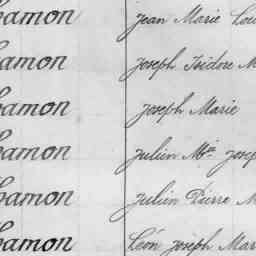 hamon Jean Marie Lou
hamon Joseph Isidore M
hamon Joseph Marie
hamon Julien Mie Josep
hamon Julien Pierre M
hamon Léon Joseph Mar